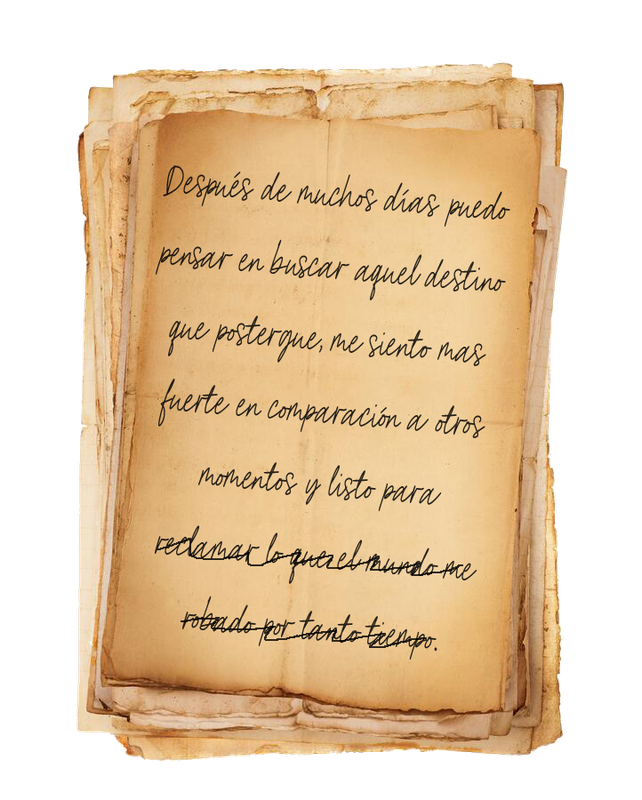 Después de muchos días puedo
pensar en buscar aquel destino
que postergue, me siento mas
fuerte en comparación a otros
momentos y listo para
reclamar lo que el mundo me
robado por tanto tiempo.